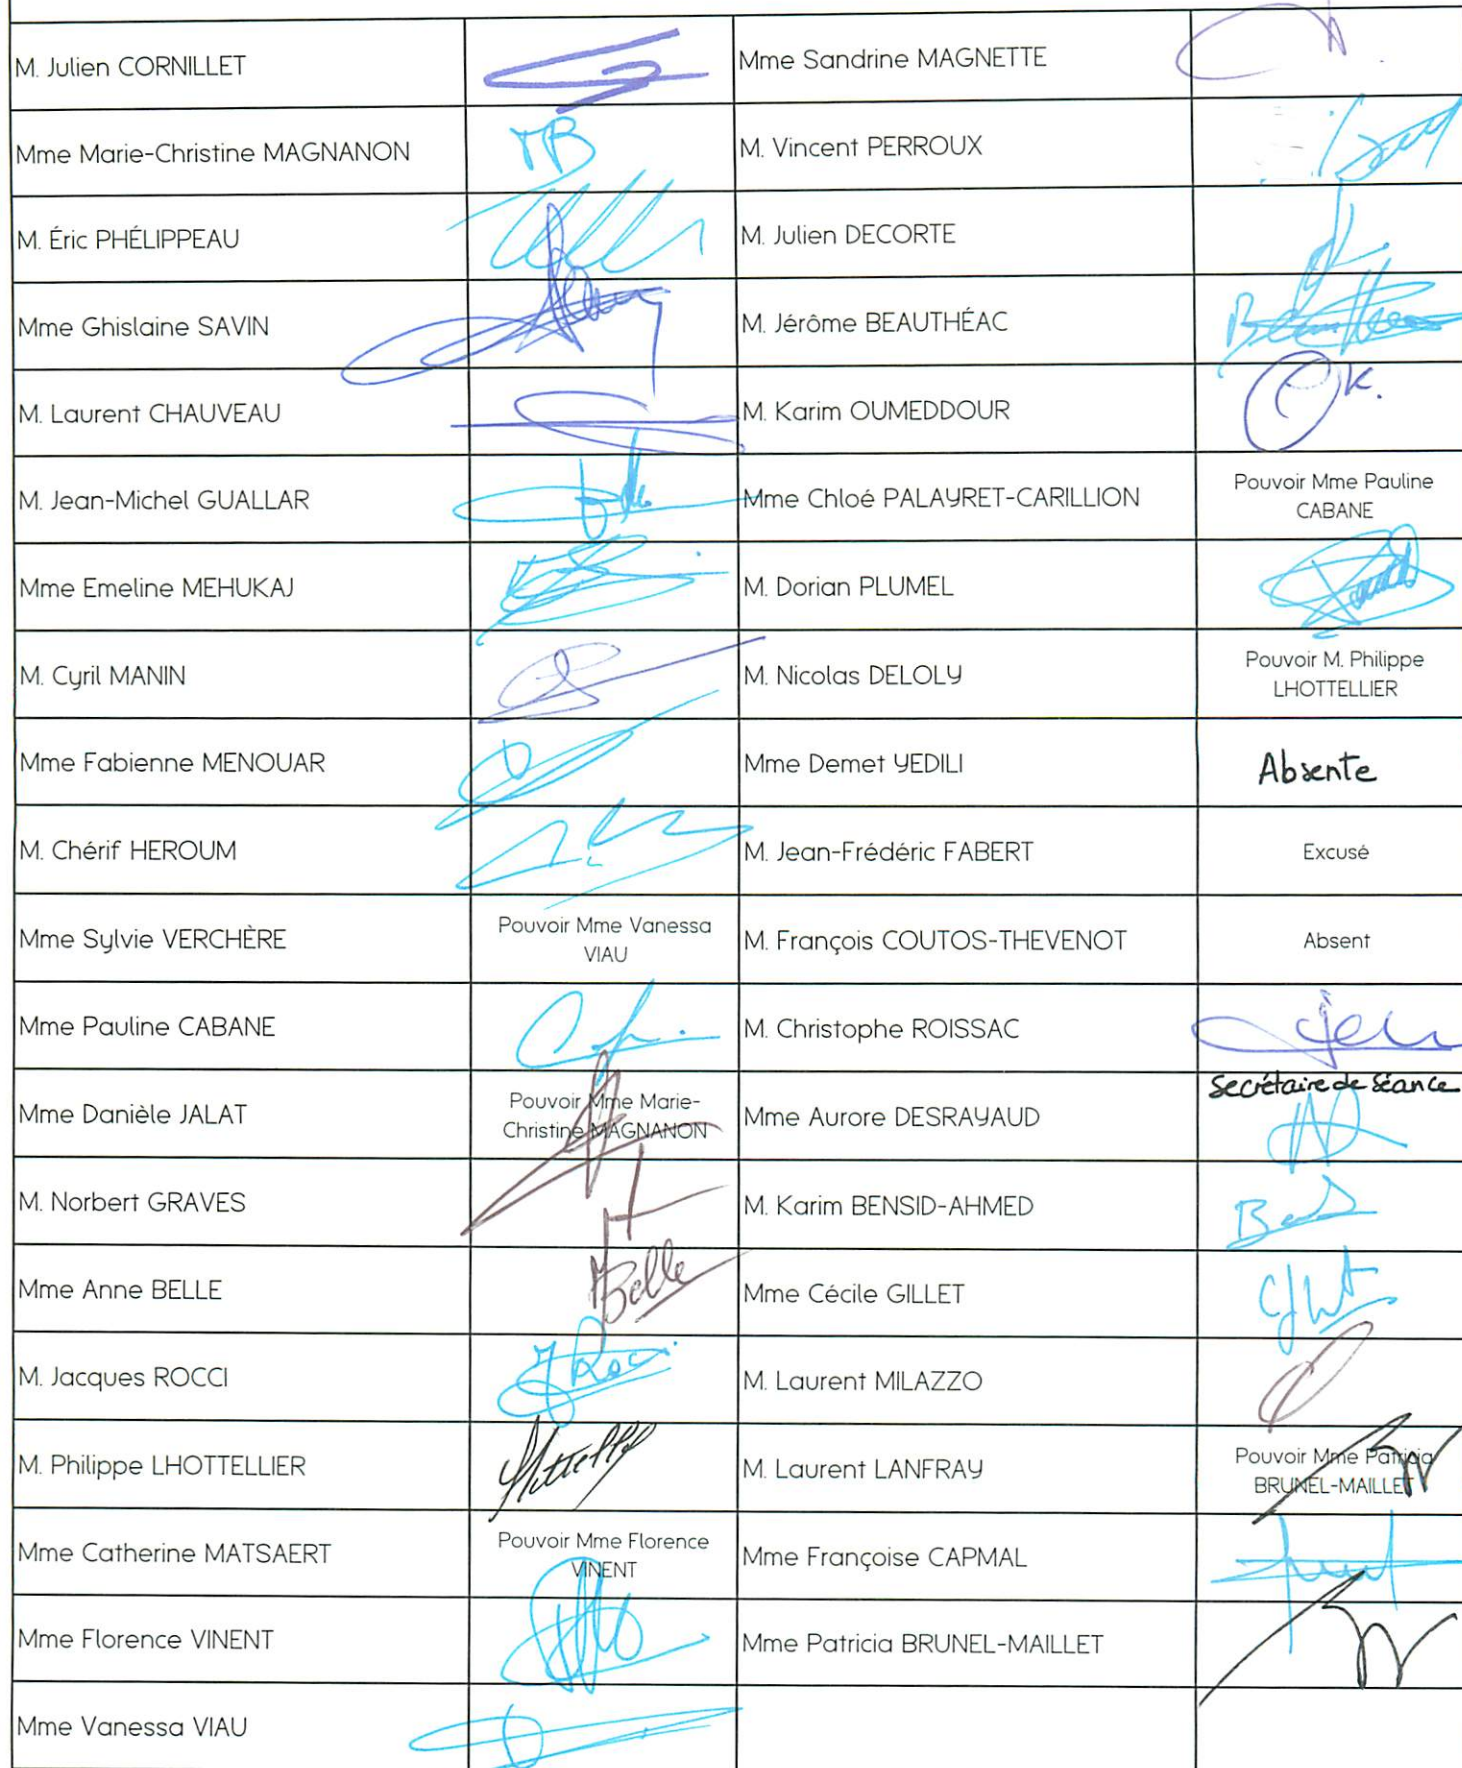 M. Julien CORNILLET
Mme Sandrine MAGNETTE
Mme Marie-Christine MAGNANON
M. Vincent PERROUX
M. Éric PHÉLIPPEAU
M. Julien DECORTE
Mme Ghislaine SAVIN
M. Jérôme BEAUTHÉAC
M. Laurent CHAUVEAU
M. Karim OUMEDDOUR
OK.
M. Jean-Michel GUALLAR
Mme Chloé PALAYRET-CARILLION
Pouvoir Mme Pauline
CABANE
Mme Emeline MEHUKAJ
M. Dorian PLUMEL
M. Cyril MANIN
M. Nicolas DELOLY
Pouvoir M. Philippe
LHOTTELLIER
Mme Fabienne MENOUAR
Mme Demet YEDILI
Absente
M. Chérif HEROUM
M. Jean-Frédéric FABERT
Excusé
Mme Sylvie VERCHÈRE
Pouvoir Mme Vanessa
VIAU
M. François COUTOS-THEVENOT
Absent
Mme Pauline CABANE
M. Christophe ROISSAC
Mme Danièle JALAT
Pouvoir Mme Marie-
Christine MAGNANON
Mme Aurore DESRAYAUD
Secrétaire de Séance
M. Norbert GRAVES
M. Karim BENSID-AHMED
Mme Anne BELLE
Belle
Mme Cécile GILLET
M. Jacques ROCCI
M. Laurent MILAZZO
M. Philippe LHOTTELLIER
M. Laurent LANFRAY
Pouvoir Mme Patricia
BRUNEL-MAILLET
Mme Catherine MATSAERT
Pouvoir Mme Florence
VINENT
Mme Françoise CAPMAL
Mme Florence VINENT
Mme Patricia BRUNEL-MAILLET
Mme Vanessa VIAU